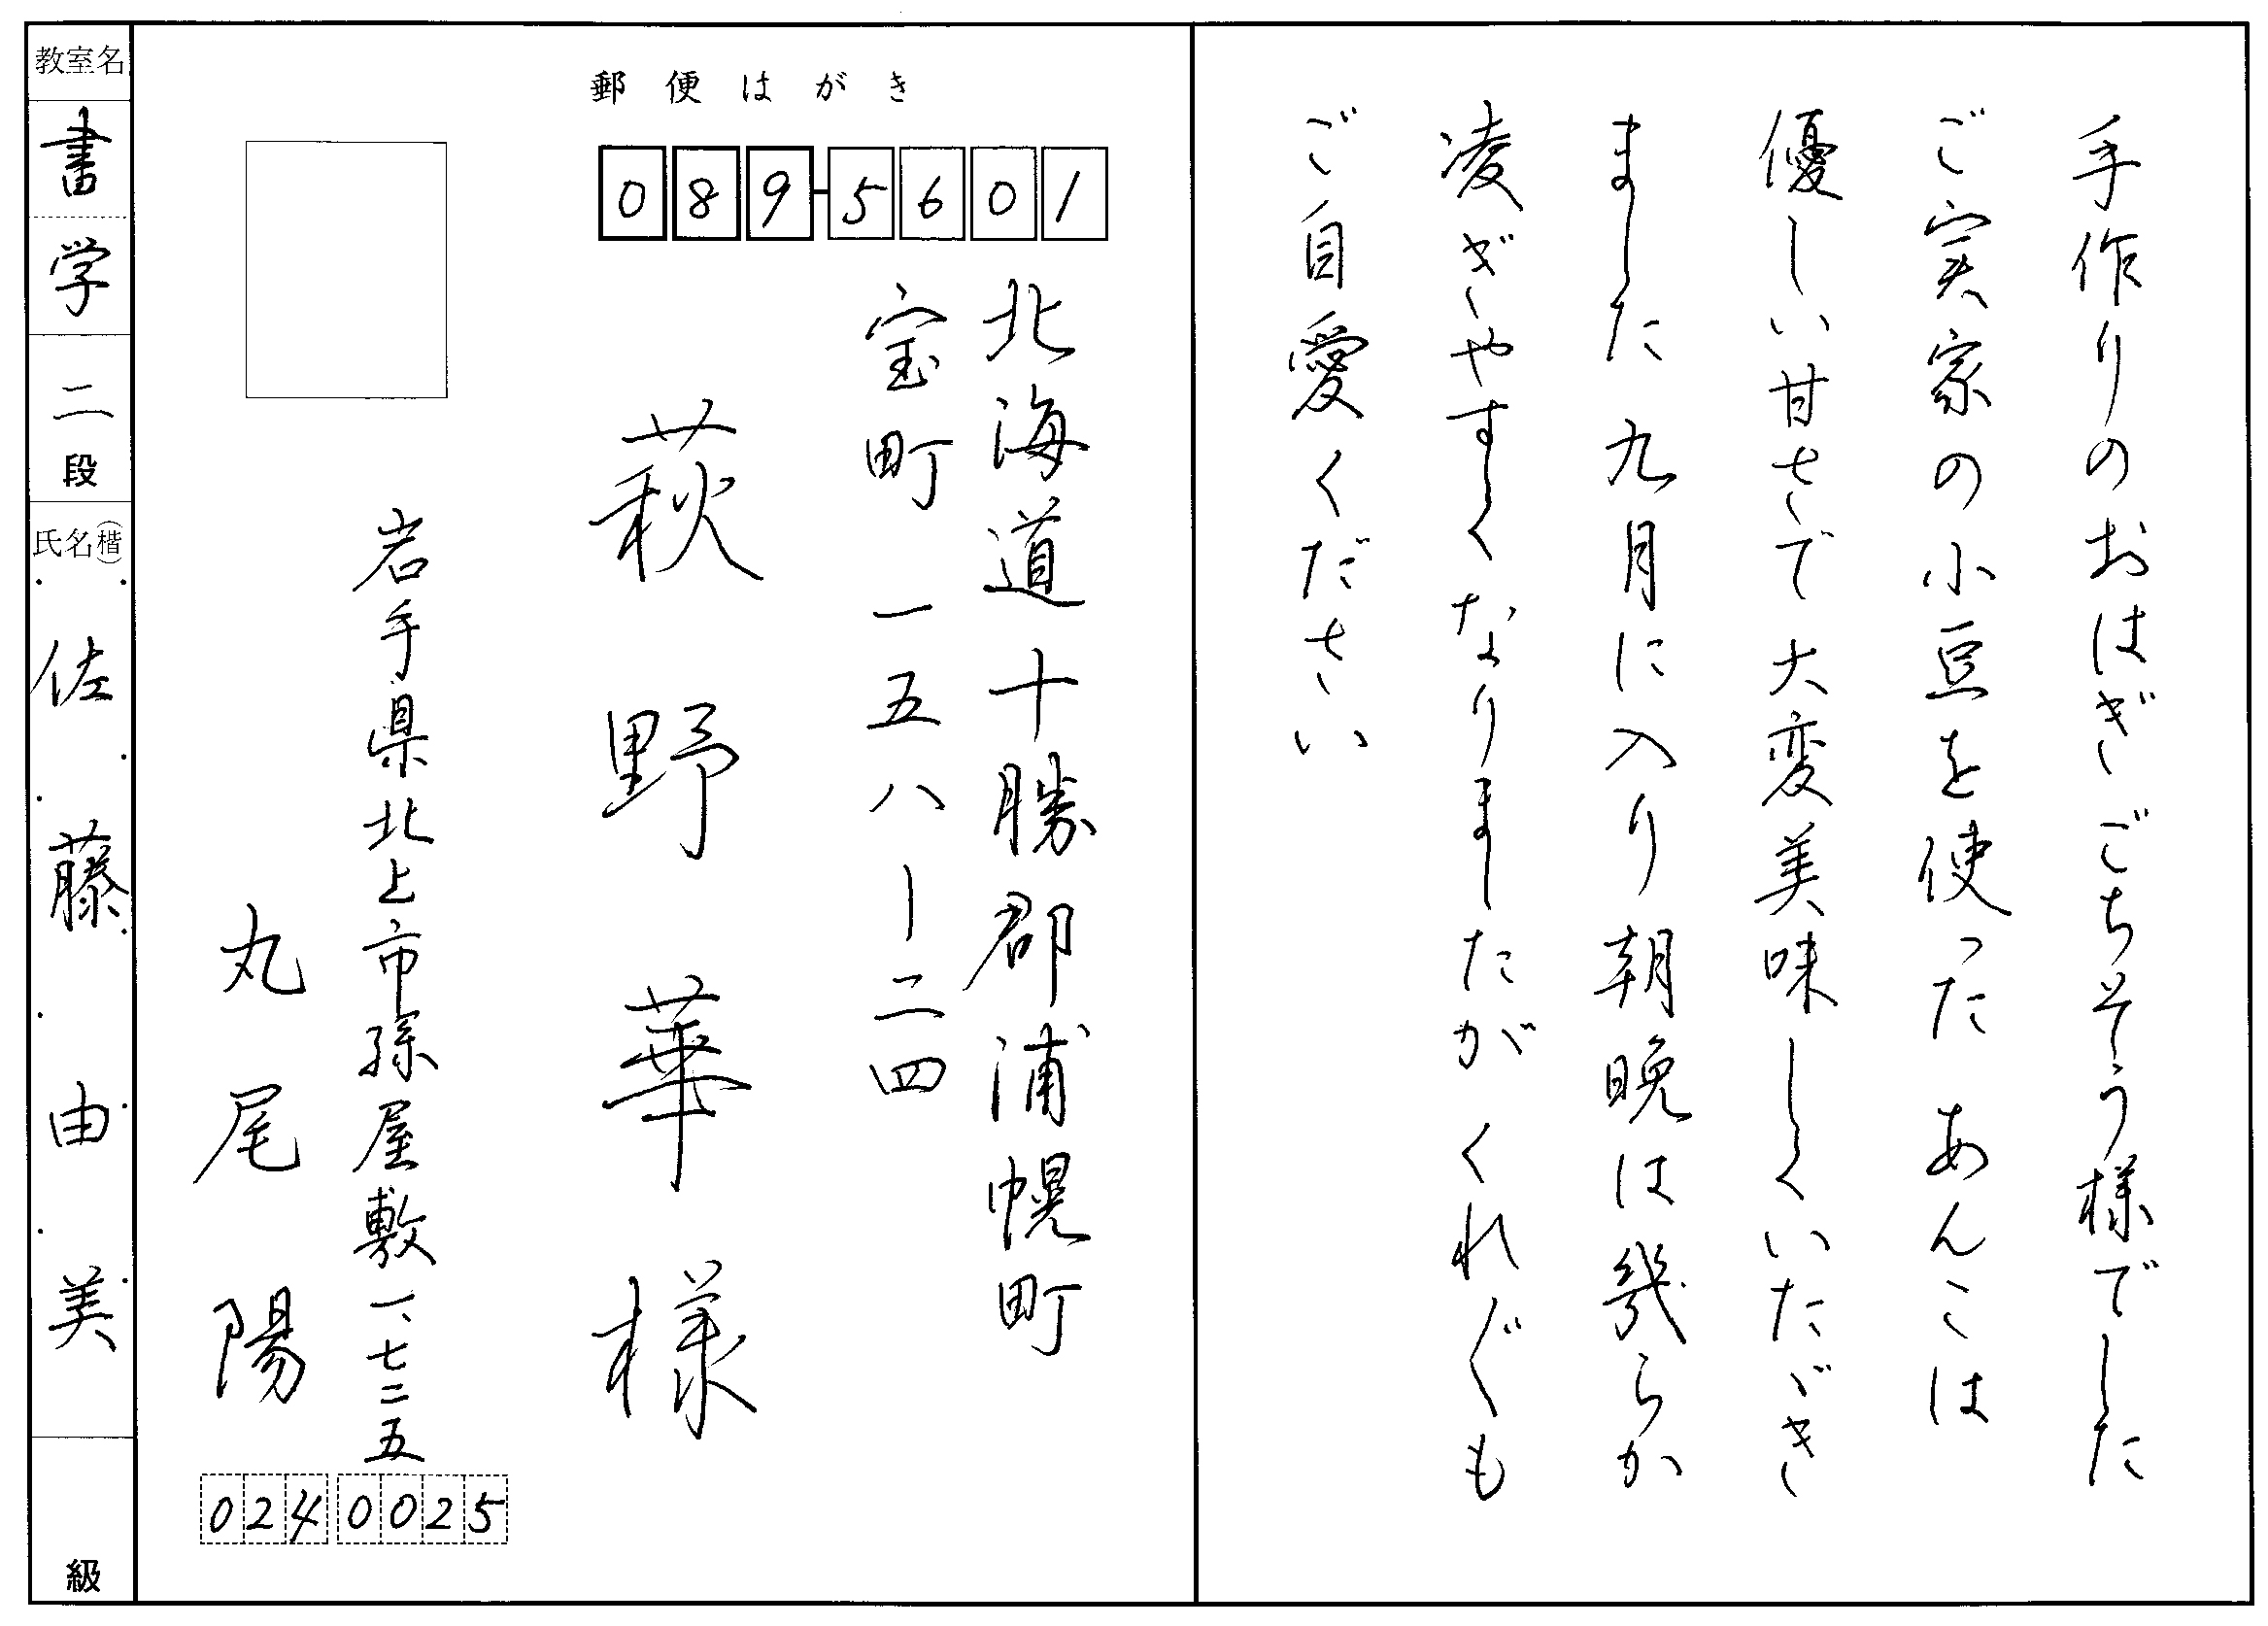 手作りのおはぎごちそう様でした
ご実家の小豆を使ったあんこは
優しい甘さで大変美味しくいたゞき
ました 九月に入り朝晩は幾らか
凌ぎやすくなりましたがくれ〴〵も
ご自愛ください
郵便はがき
089-5601
北海道十勝郡浦幌町
宝町一五八ー二四
萩野華様
岩手県北上市孫屋敷一、七二五
丸尾陽
024 0025
教室名
書学
二段
氏名(楷)
佐藤由美
級